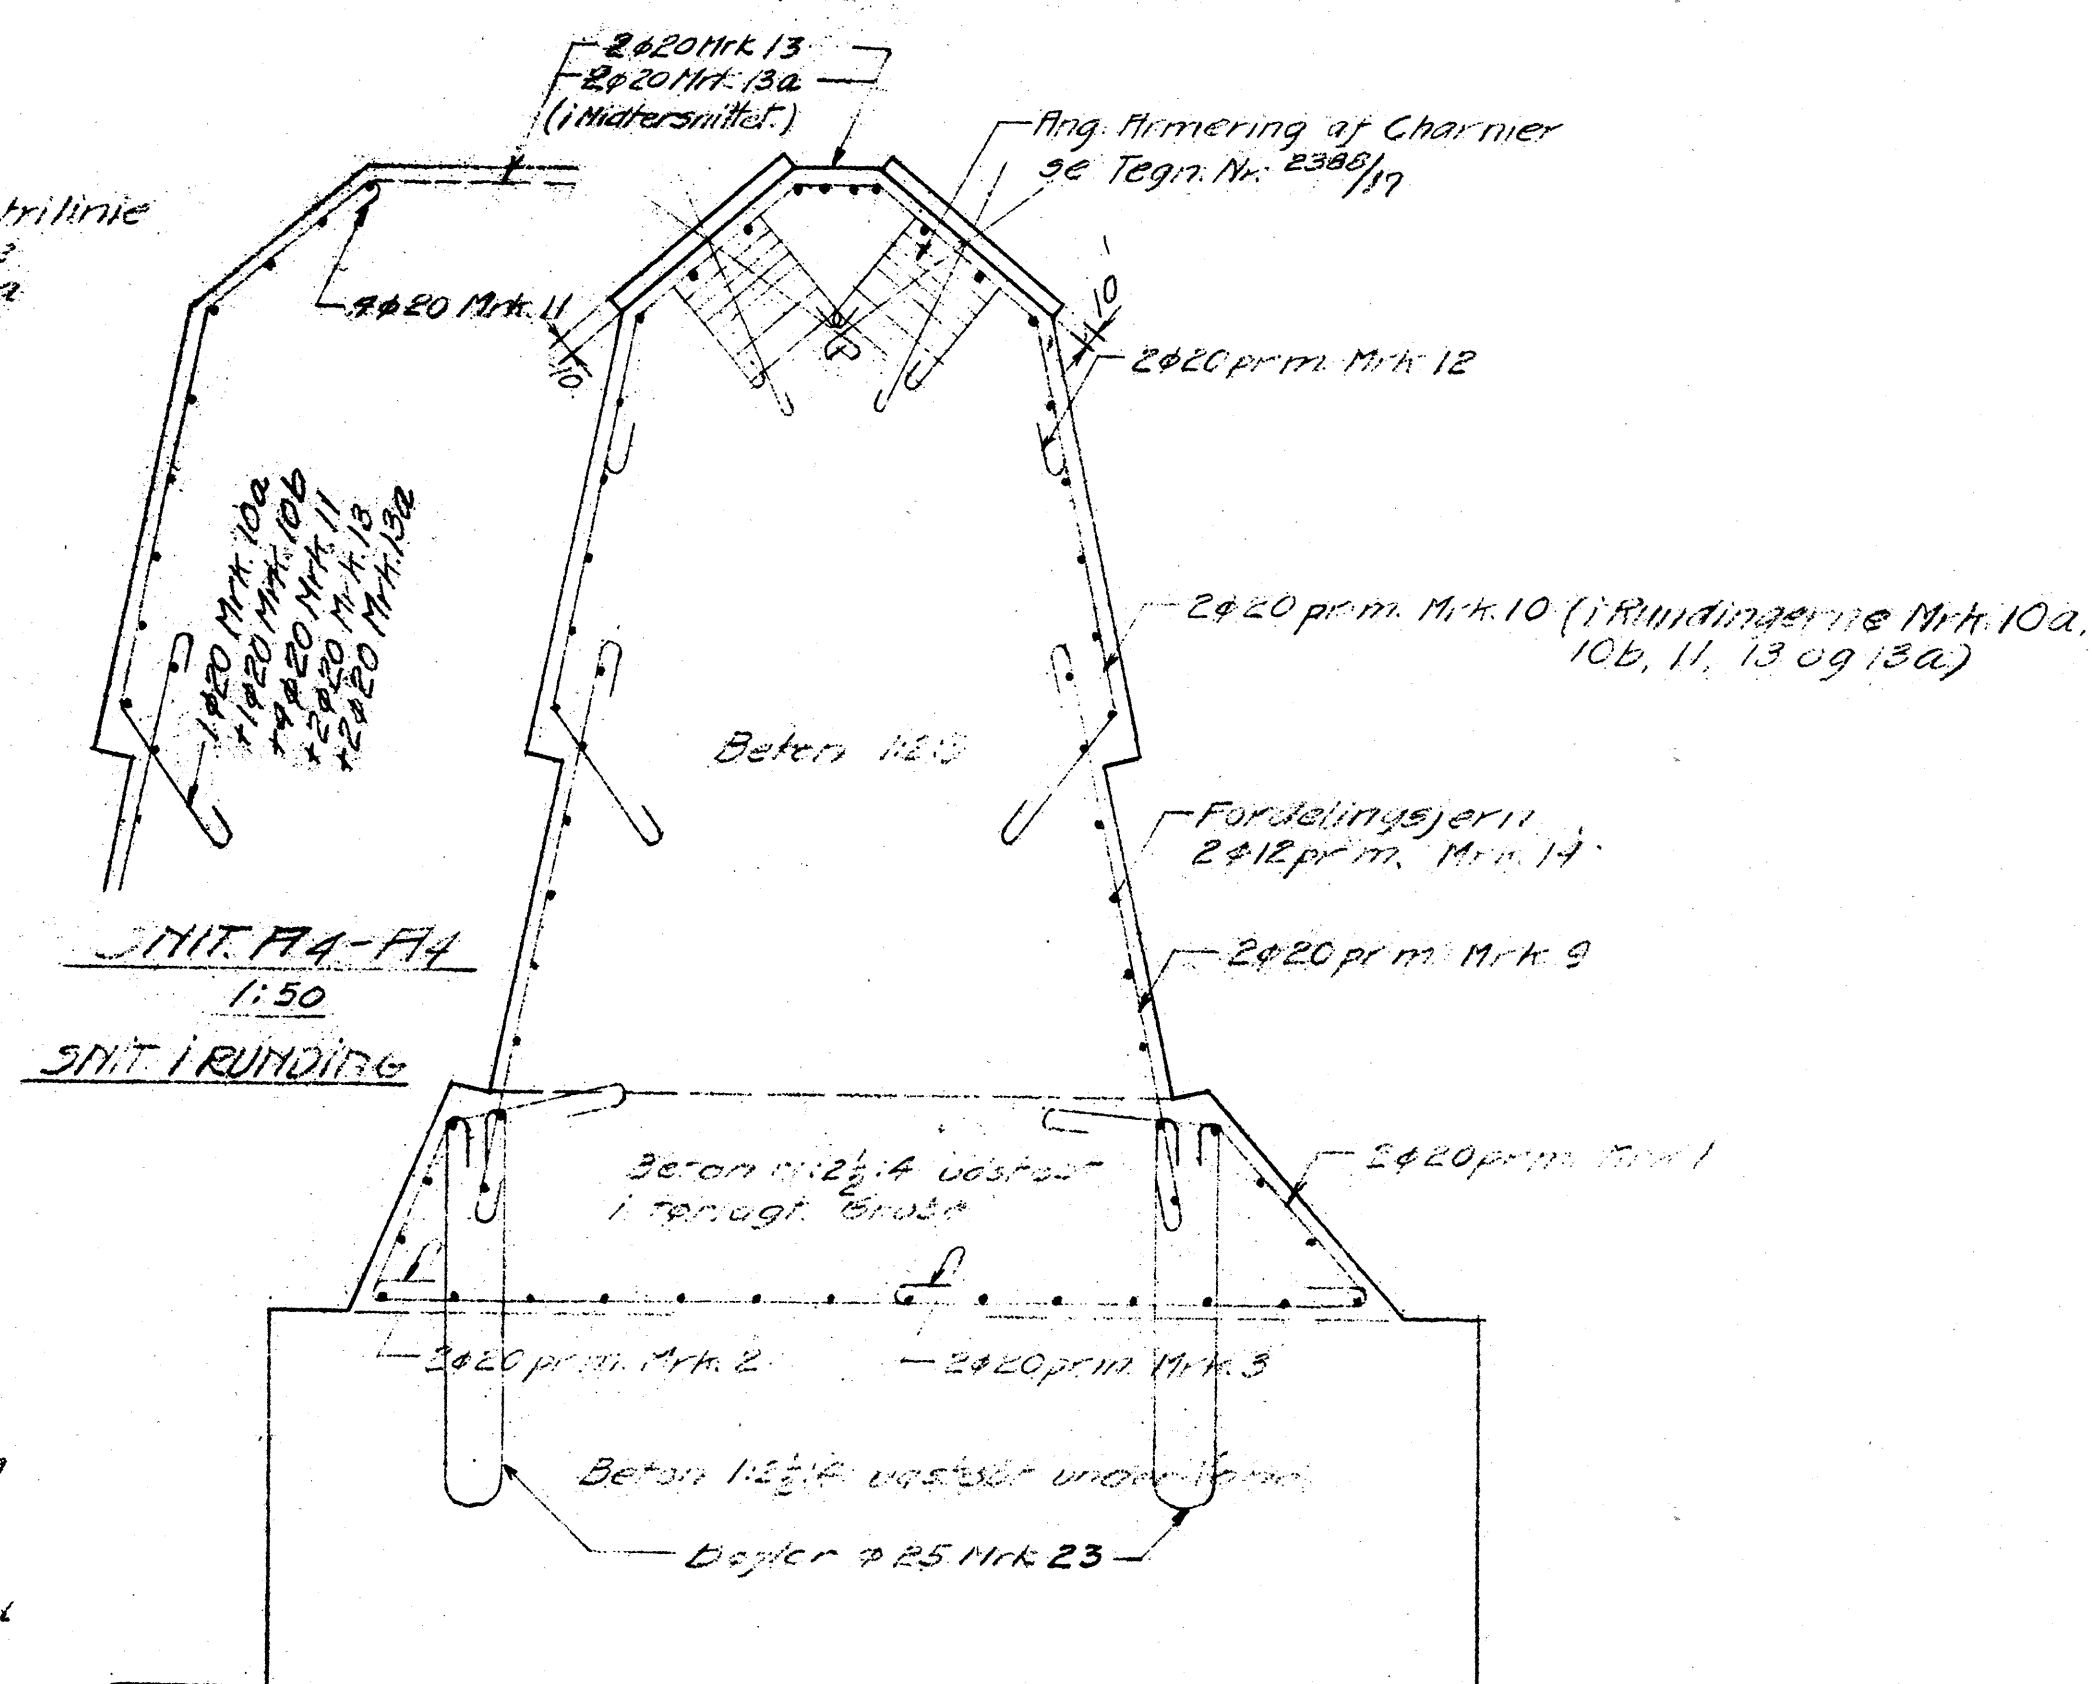 2φ20 Mrk. 13
2φ20 Mrk. 13a
(i Midtersnittet.)
Ang. Armering af Charnier
se Tegn. Nr. 2388/17
trilinie
4φ20 Mrk. 11
10
10
2φ20 pr. m. Mrk. 12
1φ20 Mrk. 10a
+1φ20 Mrk. 10b
+4φ20 Mrk. 11
+2φ20 Mrk. 13
+2φ20 Mrk. 13a
2φ20 pr. m. Mrk. 10 (i Rundingerne Mrk. 10a,
10b, 11, 13 og 13a)
Beton 1:2:3
Fordelingsjern
2φ12 pr. m. Mrk. 14
SNIT. A4-A4
1:50
SNIT i RUNDING
2φ20 pr. m. Mrk. 9
2φ20 pr. m. Mrk. 1
Beton 1:2½:4 udstøbt
i tørlagt Grube
2φ20 pr. m. Mrk. 2
2φ20 pr. m. Mrk. 3
Beton 1:2½:4 udstøbt under Vand
Bøjler φ25 Mrk. 23